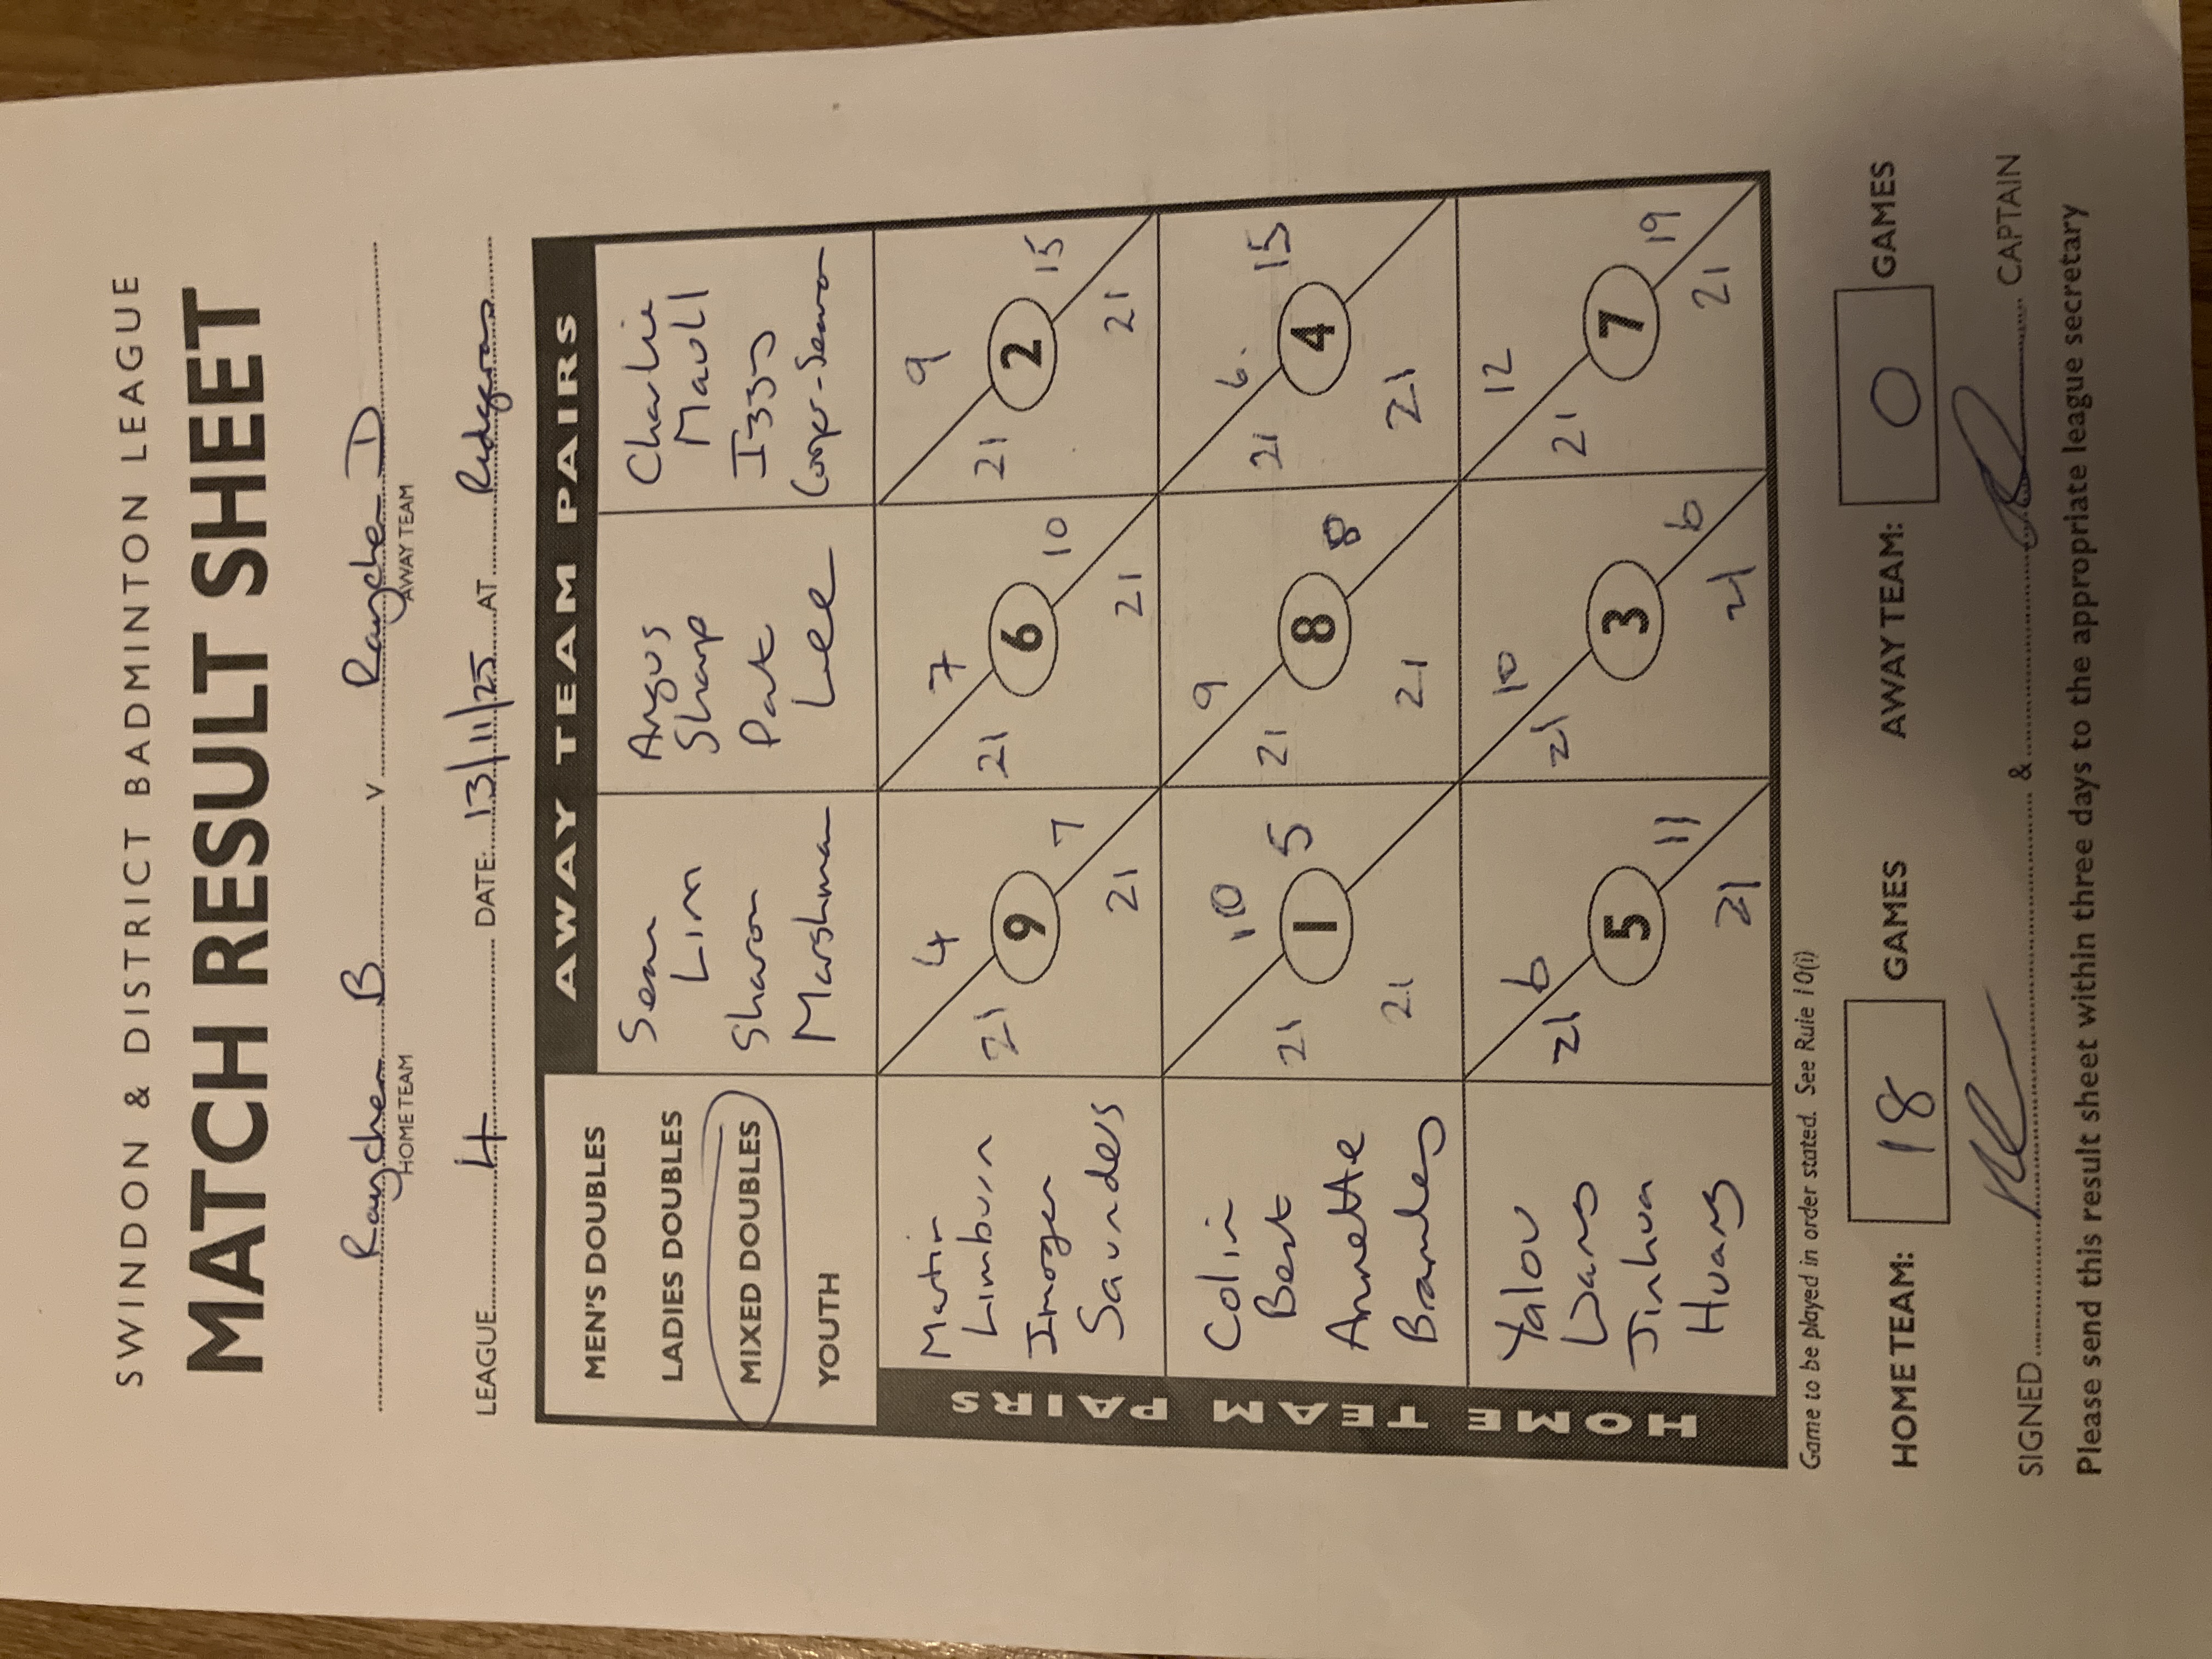 SWINDON & DISTRICT BADMINTON LEAGUE
MATCH RESULT SHEET
Rayche B v Rayche D
HOME TEAM AWAY TEAM
LEAGUE 4 DATE: 13/11/25 AT
MEN'S DOUBLES
LADIES DOUBLES
MIXED DOUBLES
YOUTH
AWAY TEAM PAIRS
Sean
Lim
Sharon
Marshman
Angus
Sharp
Pat
Lee
Charlie
Maull
Izzy
HOME TEAM PAIRS
Martin
Limburn
Imogen
Saunders
21 4
9
21 7
21 7
6
21 10
21 9
2
21 15
Colin
Best
Annette
Bramley
21 10
1
21 5
21 9
8
21 8
21 6
4
21 15
Yalou
Wang
Jinhua
Huang
21 6
5
21 11
21 10
3
21 6
21 12
7
21 19
Game to be played in order stated. See Rule 10(i)
HOME TEAM: 18 GAMES AWAY TEAM: 0 GAMES
SIGNED & CAPTAIN
Please send this result sheet within three days to the appropriate league secretary